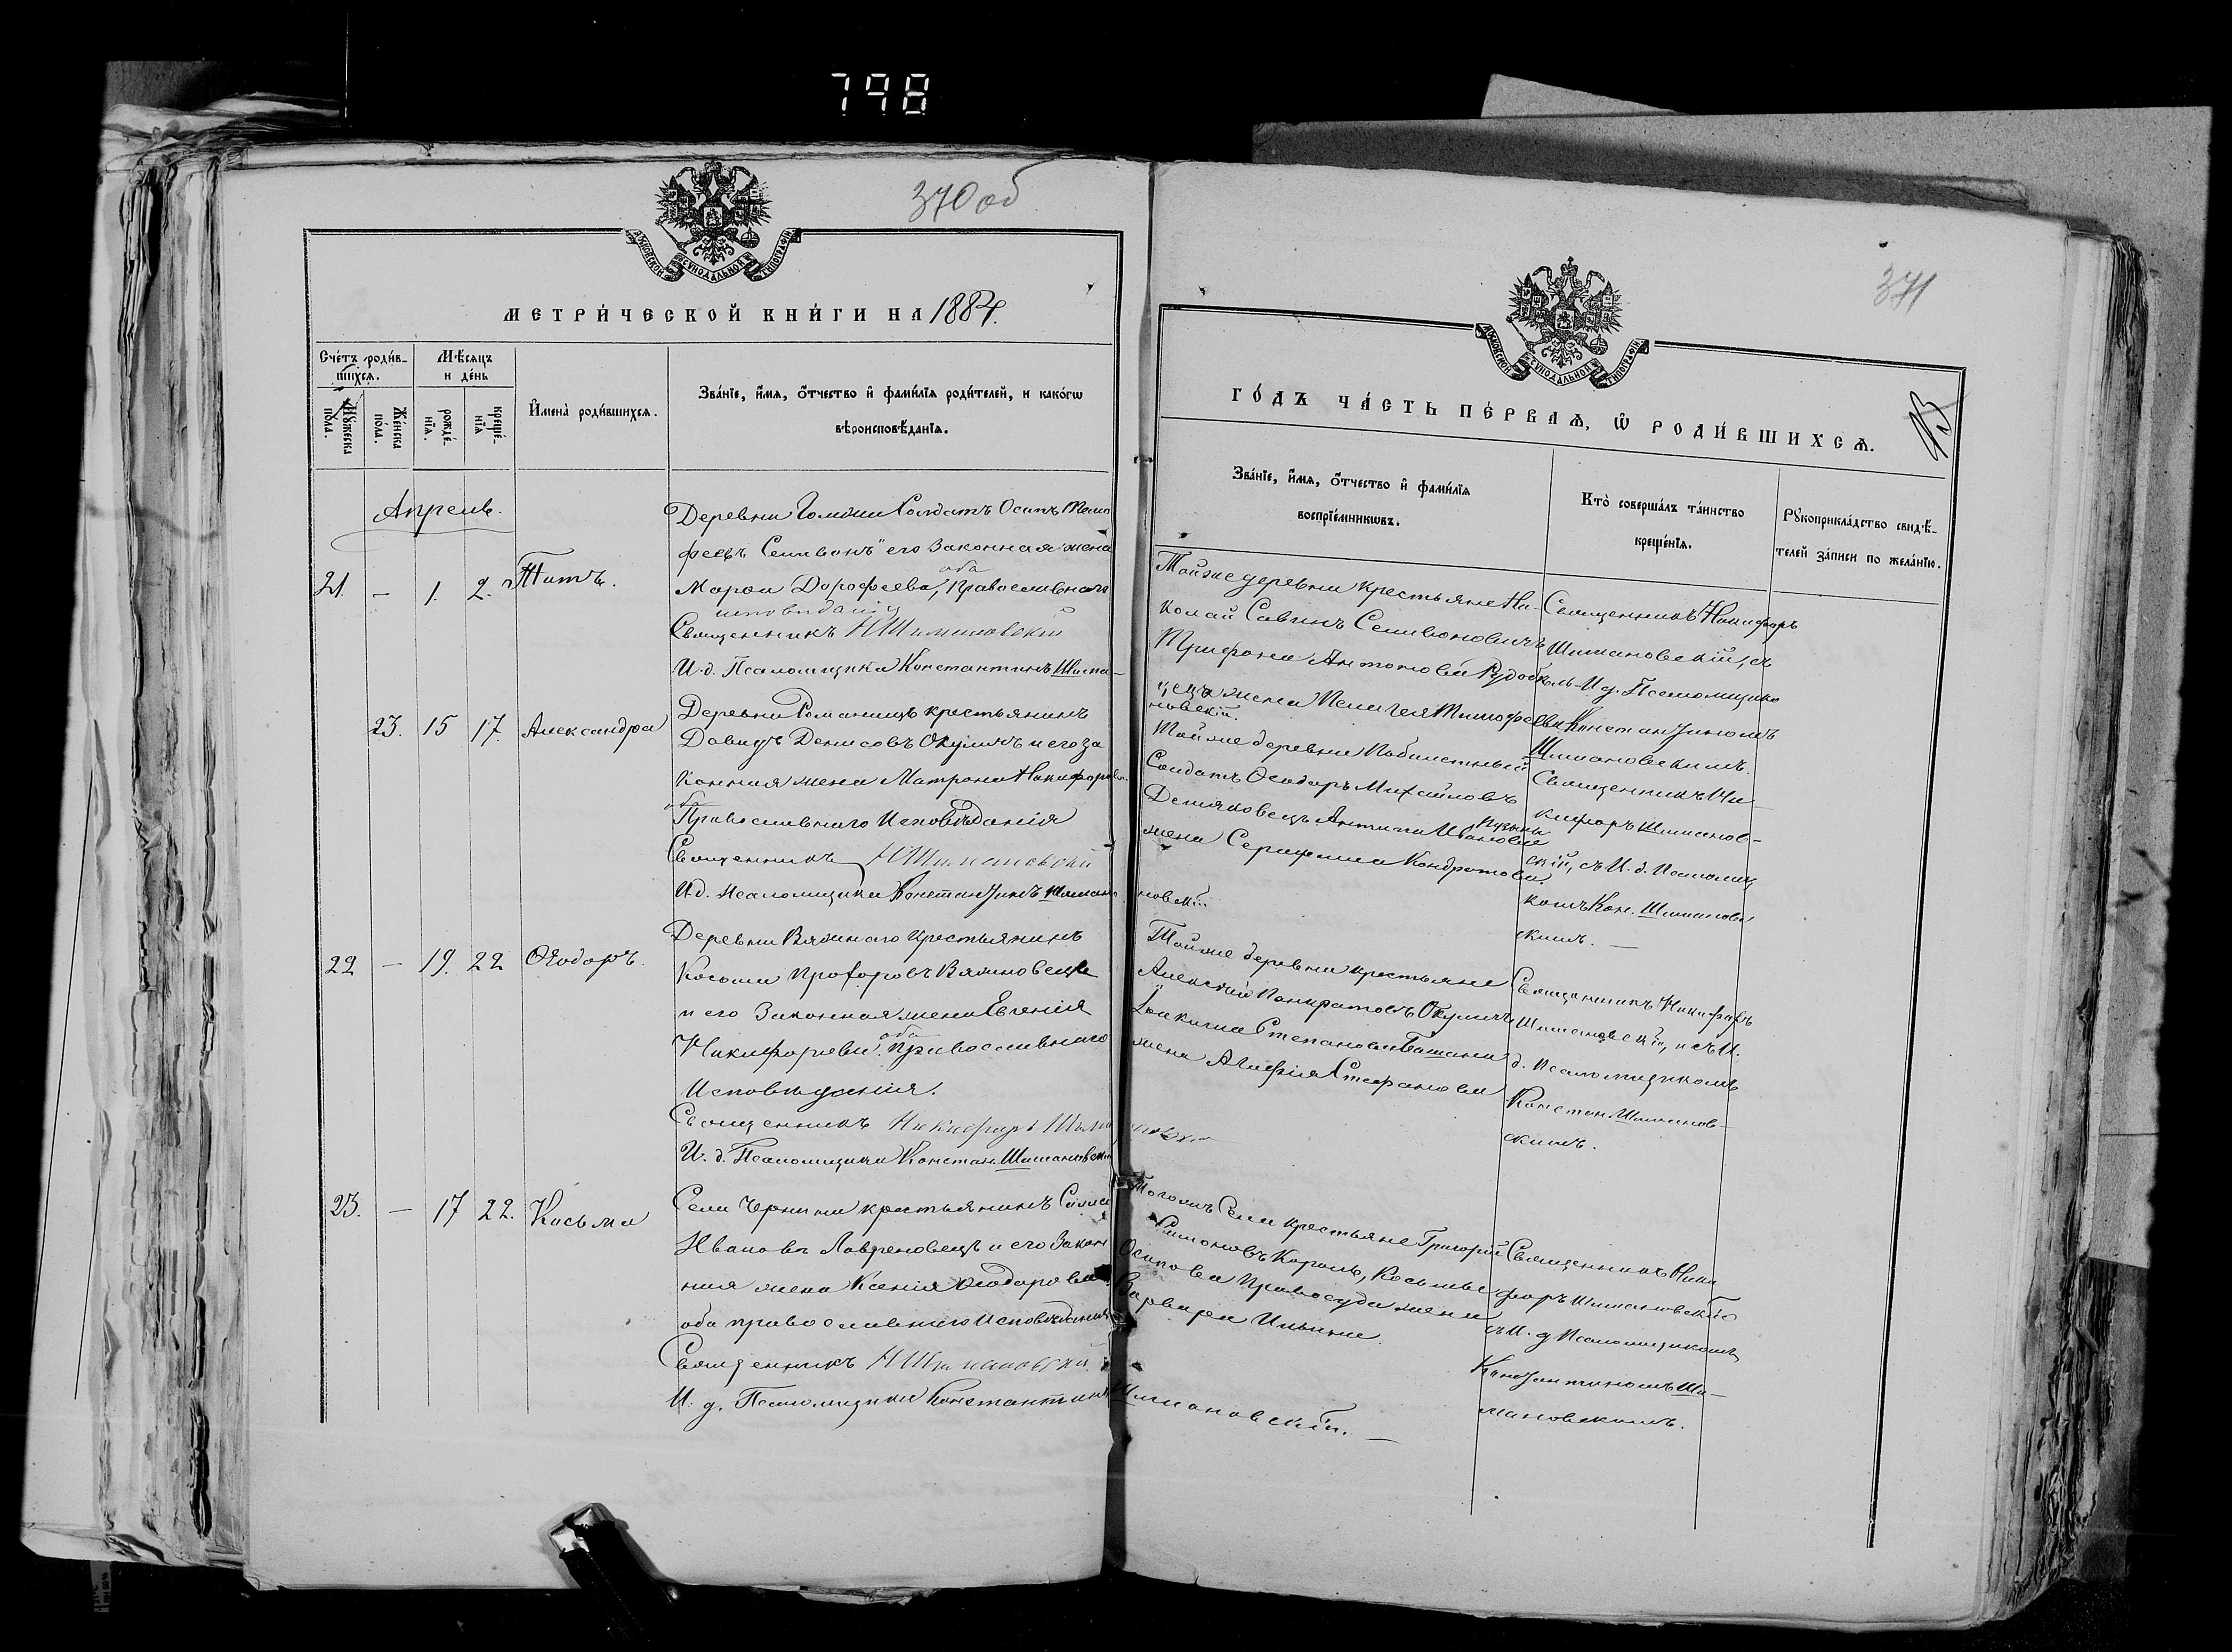 798
370 об
МОСКОВСКОЙ СУНОДАЛЬНОЙ ТИПОГРАФІИ
МЕТРИ́ЧЕСКОЙ КНИ́ГИ НА 1884.
Сче́тъ роди́в-
шихсѧ.
Мѣ́сѧцъ
и де́нь
Мꙋ́жеска
по́ла.
Же́нска
по́ла.
рожде́-
нїѧ.
креще́-
нїѧ
И҆мена̀ роди́вшихсѧ.
Зва́нїе, и҆́мѧ, ѻ҆́тчество и҆ фами́лїѧ роди́телей, и како́гѡ
вѣроисповѣ́данїѧ.
Апрель.
21. — 1. 2. Титъ.
Деревни Солдатъ Осипъ Тимо
феевъ Селивонъ его Законная жена
Марфа Дорофеева, оба Православнаго
исповѣданія
Священникъ Н Шимановскій
И. д. Псаломщика Константинъ Шима-
23. 15 17. Александра
Деревни Романищъ крестьянинъ
Давидъ Денисовъ Окуличъ и его за
конная жена Матрона Никифорова
оба Православнаго Исповѣданія
Священникъ Н Шимановскій
И. д. псаломщика Константинъ Шимано
22 — 19. 22 Ѳеодоръ.
Деревни Вяжнаго крестьянинъ
Косьма Прохоровъ Вяжновецъ
и его Законная жена Евгенія
Никифорова, оба православнаго
Исповѣданія.
Священникъ Никифоръ Шима
И. д. Псаломщика Констан. Шимановскій
23. — 17 22. Косьма
Села Чернина крестьянинъ Симеонъ
Ивановъ Лавреновецъ и его Закон
ная жена Ксенія Ѳеодорова
оба православнаго Исповѣданія
Священникъ Н Шимановскій
И. д. Псаломщика Константинъ
371
МОСКОВСКОЙ СУНОДАЛЬНОЙ ТИПОГРАФІИ
ГО́ДЪ ЧА́СТЬ ПЕ́РВАѦ, Ѡ҆ РОДИ́ВШИХСѦ.
Зва́нїе, и҆́мѧ, ѻ҆́тчество и҆ фами́лїѧ
воспрїе́мникѡвъ.
Кто̀ соверша́лъ та́инство
креще́нїѧ.
Рꙋкоприкла́дство свидѣ́-
телей за́писи по жела́нїю.
Той же деревни крестьяне Ни-
колай Савинъ Селивоновичъ
Трифона Антонова Рудобель-
ца жена Тимофеева
новскій.
Священникъ Никифоръ
Шимановскій, съ
И д. Псаломщика
Константиномъ
Шимановскимъ.
Той же деревни
Солдатъ Ѳеодоръ Михайловъ
Демяновецъ, Антипа Иванова
жена Серафима Кондратова.
новскій
Священникъ Ни-
кифоръ Шиманов-
скій, съ И. д. Псаломщ
комъ Кон. Шиманов
скимъ. —
Той же деревни крестьяне
Алексѣй Панкратовъ Окуличъ
Іоакима Степанова
жена Агафія Стефанова
Священникъ Никифоръ
Шимановскій, и съ И.
д. Псаломщикомъ
Констан. Шиманов-
скимъ.
Тогожъ Села крестьяне Григорій
Симоновъ Король, Косьмы
Осипова Правосуда жена
Варвара Ильина.
Шимановскій. —
Священникъ Ники
форъ Шимановскій
съ И. д Псаломщикомъ
Константиномъ Ши-
мановскимъ.